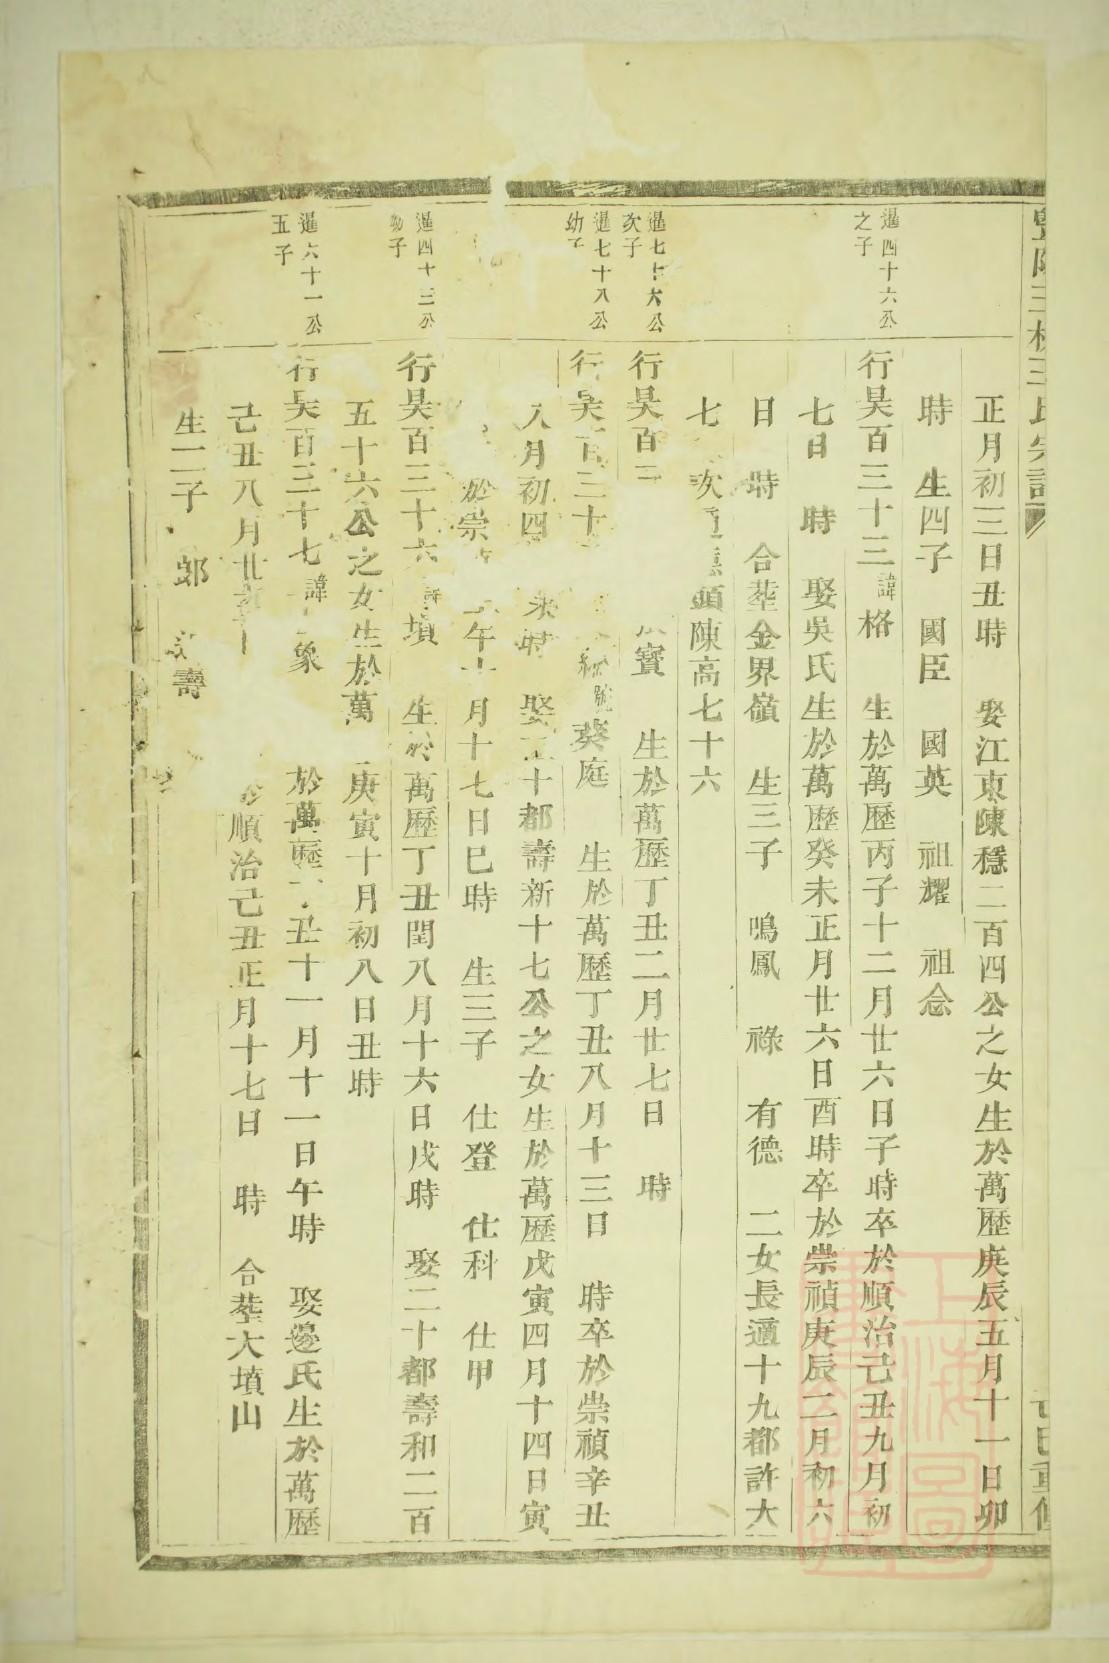 正月初三日丑時 娶江東陳穩二百四公之女生於萬歷庚辰五月十一日卯
時 生四子 國臣 國英 祖耀 祖念
暹四十六公
之子
行昊百三十三諱格 生於萬歷丙子十二月廿六日子時卒於順治己丑九月初
七日 時 娶吳氏生於萬歷癸未正月廿六日酉時卒於崇禎庚辰二月初六
日 時 合塟金界嶺 生三子 鳴鳳 祿 有德 二女長適十九都許大
七 次 頭陳高七十六
暹七十六公
次子
行昊百三 寳 生於萬歷丁丑二月廿七日 時
暹七十八公
幼子
行昊百三十 號葵庭 生於萬歷丁丑八月十三日 時卒於崇禎辛丑
八月初四 未時 娶 十都壽新十七公之女生於萬歷戊寅四月十四日寅
於崇 午 月十七日巳時 生三子 仕登 仕科 仕甲
暹四十三公
幼子
行昊百三十六諱墳 生於萬歷丁丑閏八月十六日戌時 娶二十都壽和二百
五十六公之女生於萬 庚寅十月初八日丑時
暹六十一公
五子
行昊百三十七諱 象 於萬歷 丑十一月十一日午時 娶邊氏生於萬歷
己丑八月廿 於順治己丑正月十七日 時 合塟大墳山
生二子 郷 壽
上海圖書館藏